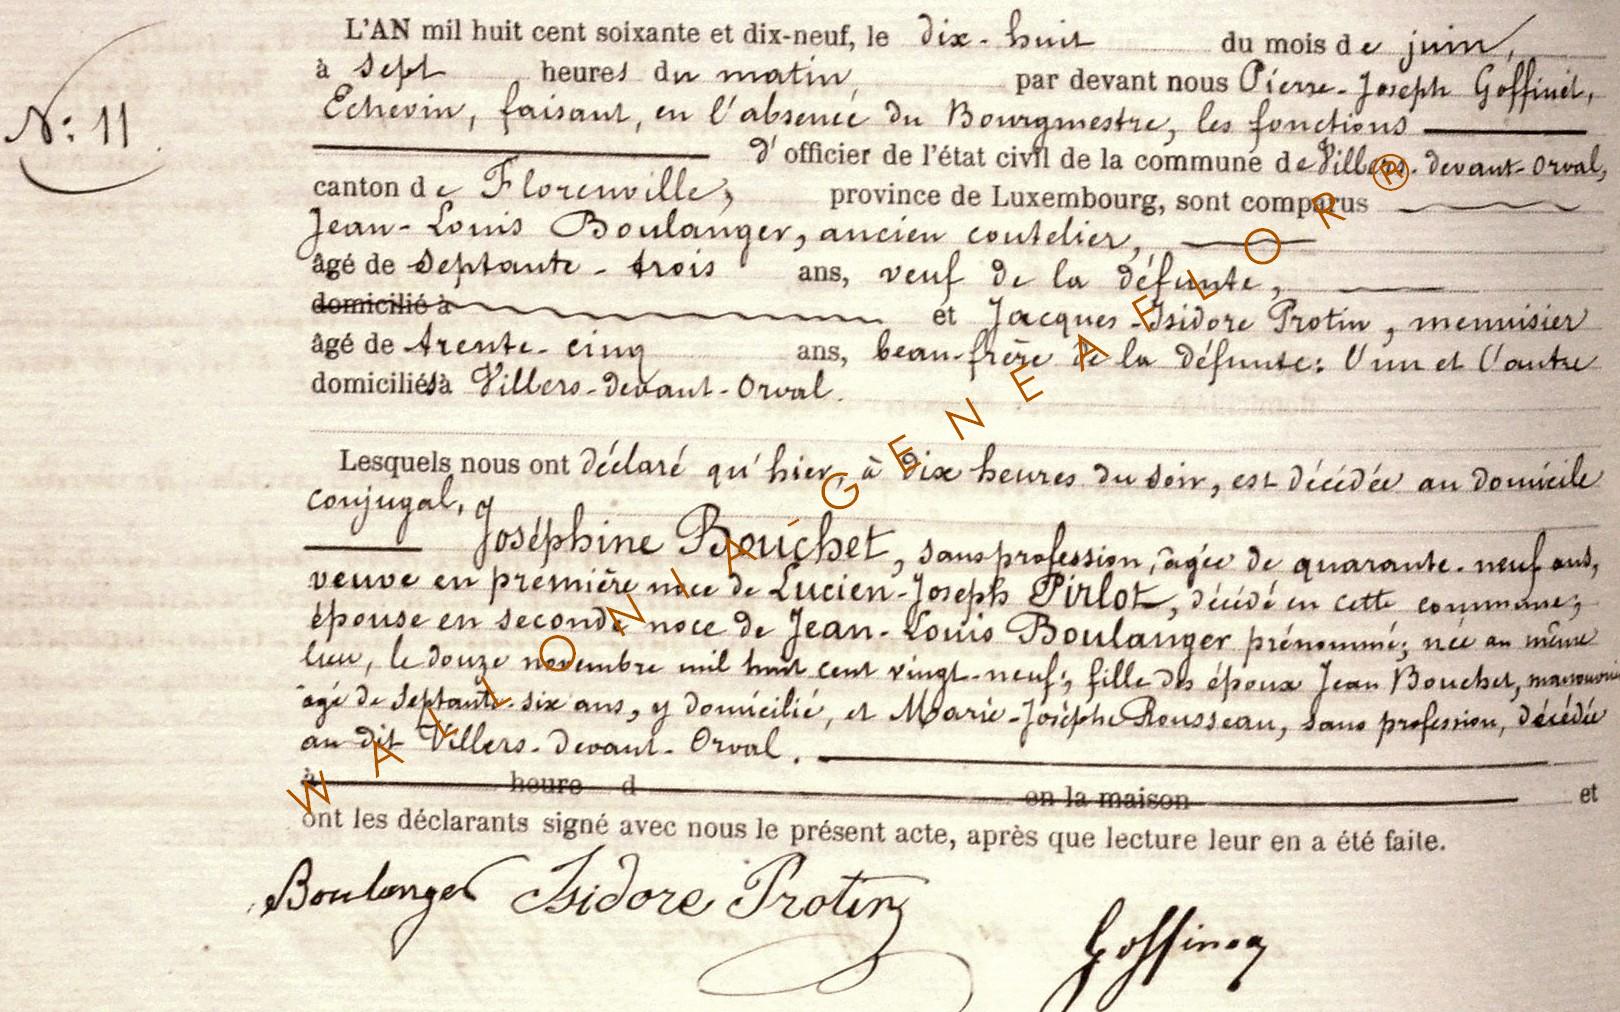 L'AN mil huit cent soixante et dix-neuf, le dix-huit du mois de juin,
à sept heures du matin, par devant nous Pierre-Joseph Goffinet,
Echevin, faisant, en l'absence du Bourgmestre, les fonctions
N: 11.
d'officier de l'état civil de la commune de Villers-devant-Orval,
canton de Florenville, province de Luxembourg, sont comparus
Jean-Louis Boulanger, ancien coutelier,
âgé de septante-trois ans, veuf de la défunte,
domicilié à et Jacques-Isidore Protin, menuisier
âgé de trente-cinq ans, beau-frère de la défunte: l'un et l'autre
domiciliés à Villers-devant-Orval.
Lesquels nous ont déclaré qu'hier, à dix heures du soir, est décédée au domicile
conjugal,
Joséphine Bouchet, sans profession, âgée de quarante-neuf ans,
veuve en première noce de Lucien-Joseph Pirlot, décédé en cette commune,
épouse en seconde noce de Jean-Louis Boulanger prénommé; née au même
lieu, le douze novembre mil huit cent vingt-neuf; fille des époux Jean Bouchet, manouvrier
âgé de septante-six ans, y domicilié, et Marie-Josèphe Rousseau, sans profession, décédée
au dit Villers-devant-Orval.
à heure d en la maison et
ont les déclarants signé avec nous le présent acte, après que lecture leur en a été faite.
Boulanger Isidore Protin
Goffinet
WALLONIA-GENEAFLOR®